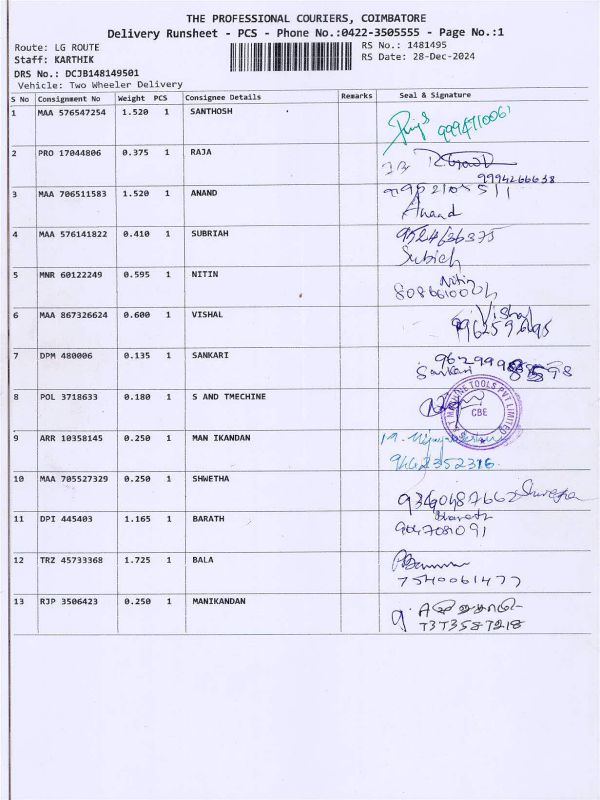 THE PROFESSIONAL COURIERS, COIMBATORE
Delivery Runsheet - PCS - Phone No.:0422-3505555 - Page No.:1
Route: LG ROUTE RS No.: 1481495
Staff: KARTHIK RS Date: 28-Dec-2024
DRS No.: DCJB148149501
Vehicle: Two Wheeler Delivery
S No Consignment No Weight PCS Consignee Details Remarks Seal & Signature
1 MAA 576547254 1.520 1 SANTHOSH 9994710061
2 PRO 17044806 0.375 1 RAJA
9994266638
3 MAA 706511583 1.520 1 ANAND
Anand
4 MAA 576141822 0.410 1 SUBRIAH
5 MNR 60122249 0.595 1 NITIN Nitin
6 MAA 867326624 0.600 1 VISHAL Vishal
7 DPM 480006 0.135 1 SANKARI
Sankari
8 POL 3718633 0.180 1 S AND TMECHINE TOOLS PVT LIMITED CBE
9 ARR 10358145 0.250 1 MAN IKANDAN
10 MAA 705527329 0.250 1 SHWETHA
11 DPI 445403 1.165 1 BARATH Bharath
9047081091
12 TRZ 45733368 1.725 1 BALA
7540061477
13 RJP 3506423 0.250 1 MANIKANDAN